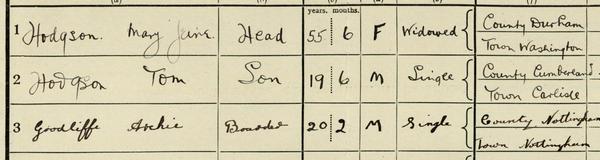 years. months.
1 Hodgson. Mary Jane. Head 55 6 F Widowed County Durham
Town Washington
2 Hodgson Tom Son 19 6 M Single County Cumberland
Town Carlisle
3 Goodliffe Archie Boarder 20 2 M Single County Nottingham
Town Nottingham